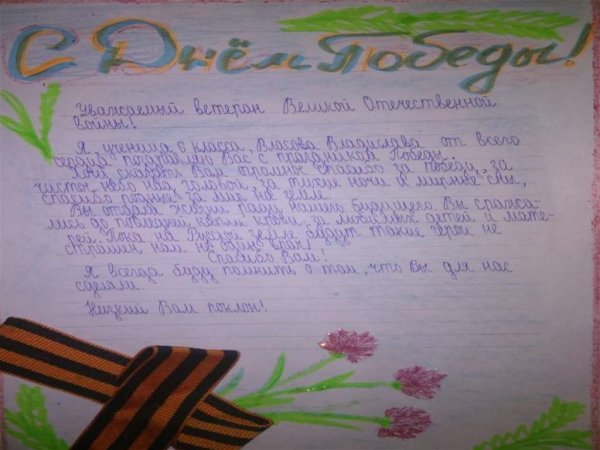 С Днём Победы!
Уважаемый ветеран Великой Отечественной
войны!
Я, ученица 6 класса, Власова Владислава от всего
сердца поздравляю Вас с праздником Победы.
Хочу сказать Вам огромное спасибо за победу, за
чистое небо над головой, за тихие ночи и мирные сны,
спасибо родные за мир на земле.
Вы отдали жизни ради нашего будущего Вы сража-
лись до последней капли крови, за любимых детей и мате-
рей. Пока на Русской земле будут такие герои не
страшен нам не один враг!
Спасибо Вам!
Я всегда буду помнить о том, что Вы для нас
сделали
Низкий Вам поклон!